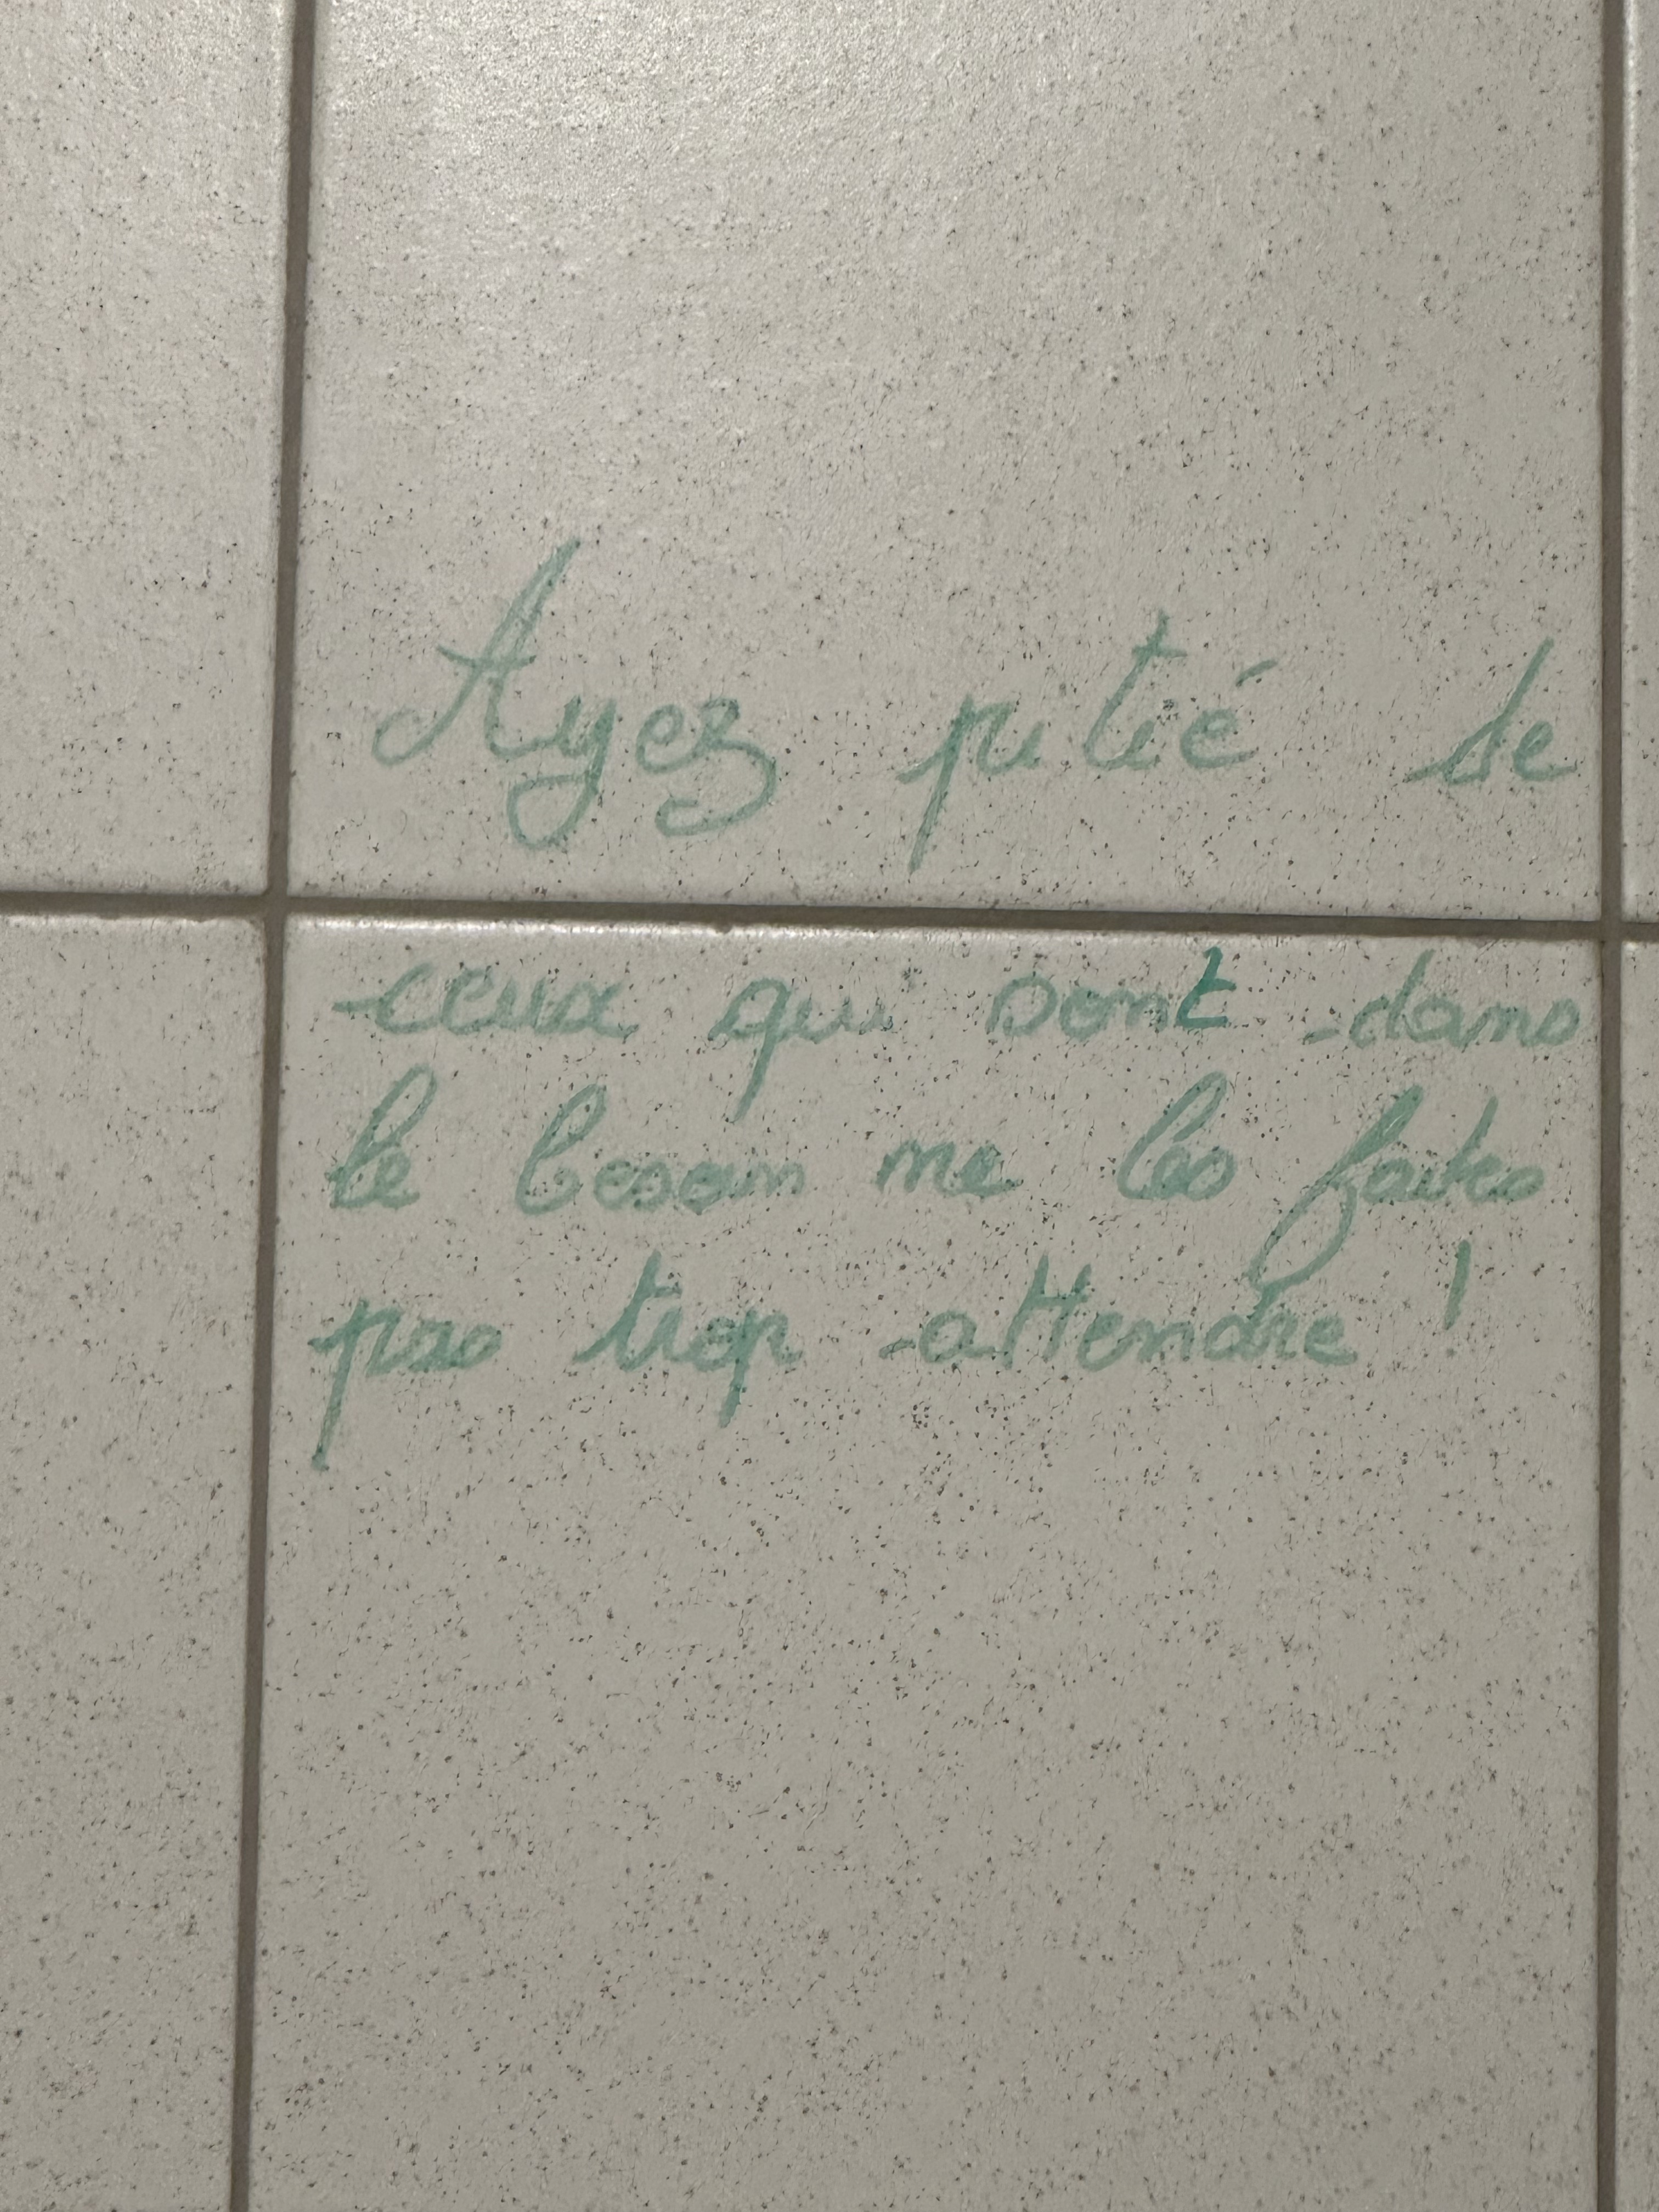 Ayez pitié de
ceux qui sont dans
le besoin ne les faites
pas trop attendre !